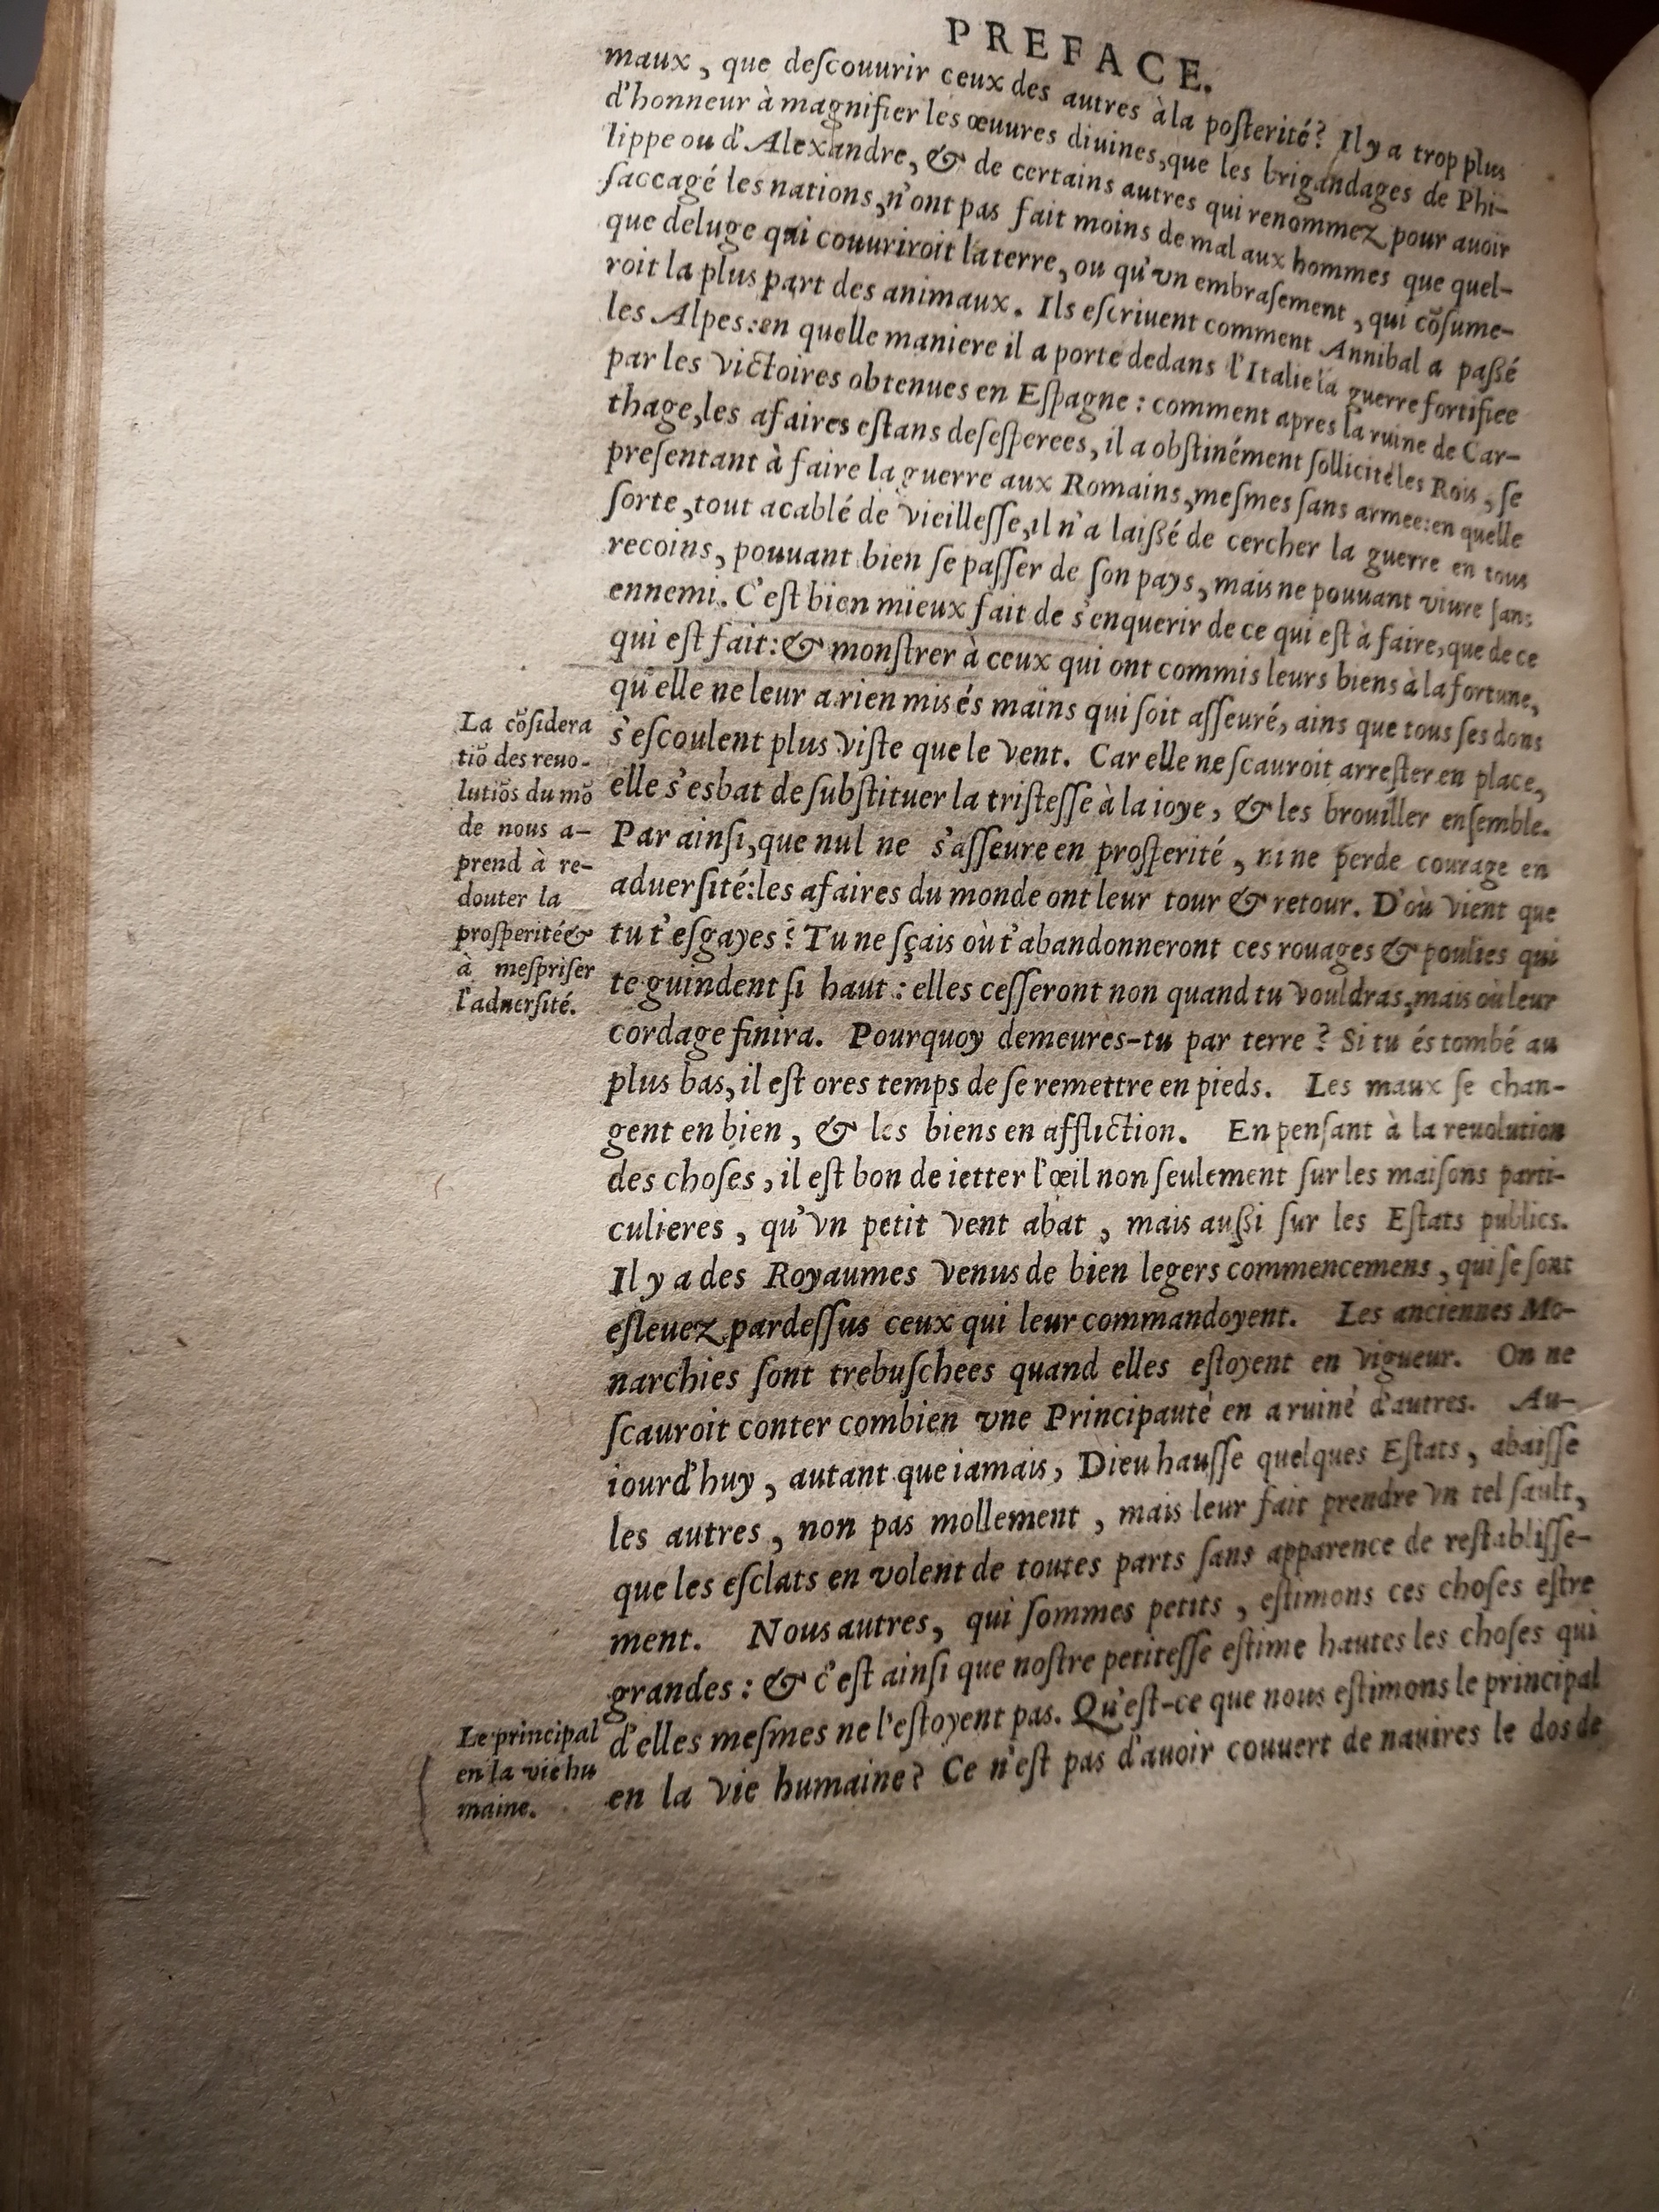 PREFACE.
maux, que deſcouurir ceux des autres à la poſterité? Il y a trop plus
d'honneur à magnifier les œuures diuines, que les brigandages de Phi-
lippe ou d'Alexandre, & de certains autres qui renommez pour auoir
ſaccagé les nations, n'ont pas fait moins de mal aux hommes que quel-
que deluge qui couuriroit la terre, ou qu'vn embraſement, qui cõſume-
roit la plus part des animaux. Ils eſcriuent comment Annibal a paßé
les Alpes: en quelle maniere il a porté dedans l'Italie la guerre fortifiee
par les victoires obtenues en Eſpagne: comment apres la ruine de Car-
thage, les afaires eſtans deſeſperees, il a obſtinément ſollicité les Rois, ſe
preſentant à faire la guerre aux Romains, meſmes ſans armee: en quelle
ſorte, tout acablé de vieilleſſe, il n'a laißé de cercher la guerre en tous
recoins, pouuant bien ſe paſſer de ſon pays, mais ne pouuant viure ſans
ennemi. C'eſt bien mieux fait de s'enquerir de ce qui eſt à faire, que de ce
qui eſt fait: & monſtrer à ceux qui ont commis leurs biens à la fortune,
qu'elle ne leur a rien mis és mains qui ſoit aſſeuré, ains que tous ſes dons
s'eſcoulent plus viſte que le vent. Car elle ne ſcauroit arreſter en place,
elle s'esbat de ſubſtituer la triſteſſe à la ioye, & les brouiller enſemble.
Par ainſi, que nul ne s'aſſeure en proſperité, ni ne perde courage en
aduerſité: les afaires du monde ont leur tour & retour. D'où vient que
tu t'eſgayes? Tu ne ſçais où t'abandonneront ces rouages & poulies qui
te guindent ſi haut: elles ceſſeront non quand tu vouldras, mais où leur
cordage finira. Pourquoy demeures-tu par terre? Si tu és tombé au
plus bas, il eſt ores temps de ſe remettre en pieds. Les maux ſe chan-
gent en bien, & les biens en affliction. En penſant à la reuolution
des choſes, il eſt bon de ietter l'œil non ſeulement ſur les maiſons parti-
culieres, qu'vn petit vent abat, mais außi ſur les Eſtats publics.
Il y a des Royaumes venus de bien legers commencemens, qui ſe ſont
eſleuez pardeſſus ceux qui leur commandoyent. Les anciennes Mo-
narchies ſont trebuſchees quand elles eſtoyent en vigueur. On ne
ſcauroit conter combien vne Principauté en a ruiné d'autres. Au-
iourd'huy, autant que iamais, Dieu hauſſe quelques Eſtats, abaiſſe
les autres, non pas mollement, mais leur fait prendre vn tel ſault,
que les eſclats en volent de toutes parts ſans apparence de reſtabliſſe-
ment. Nous autres, qui ſommes petits, eſtimons ces choſes eſtre
grandes: & c'eſt ainſi que noſtre petiteſſe eſtime hautes les choſes qui
d'elles meſmes ne l'eſtoyent pas. Qu'eſt-ce que nous eſtimons le principal
en la vie humaine? Ce n'eſt pas d'auoir couuert de nauires le dos de
La cõſidera
tiõ des reuo-
lutiõs du mõ
de nous a-
prend à re-
douter la
proſperité &
à meſpriſer
l'aduerſité.
Le principal
en la vie hu
maine.